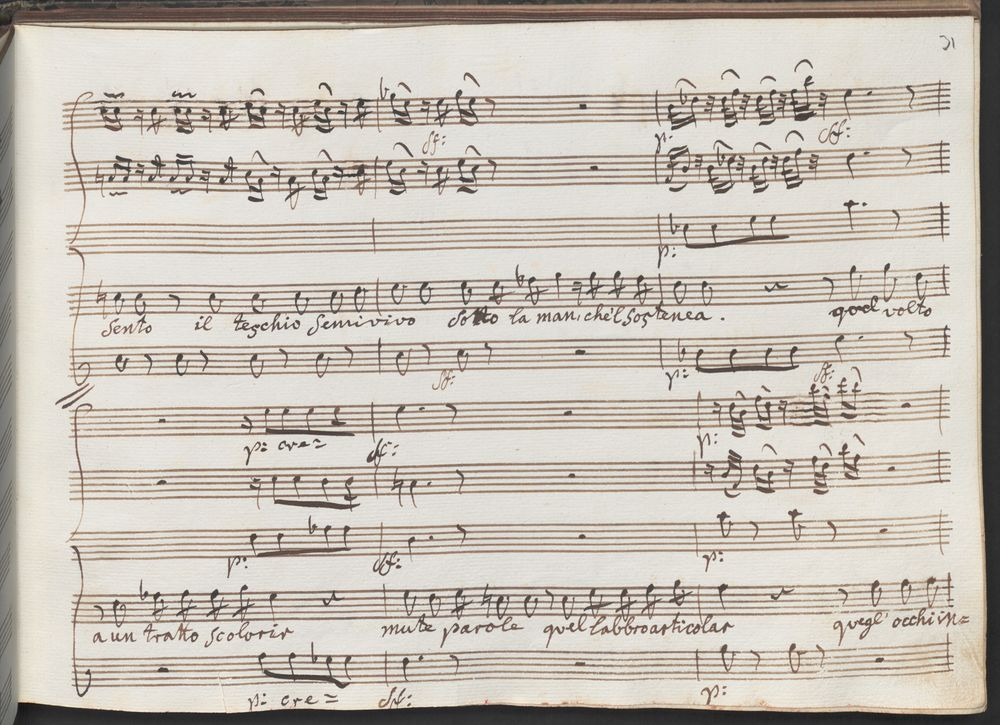 31
sf:
p: sf:
p:
sento il teschio semivivo sotto la man, che'l sostenea. quel volto
sf: p: sf:
p: cre= sf: p:
p: sf: p:
a un tratto scolorir mute parole quel labbro articolar quegl' occhi in=
p: cre= sf: p: